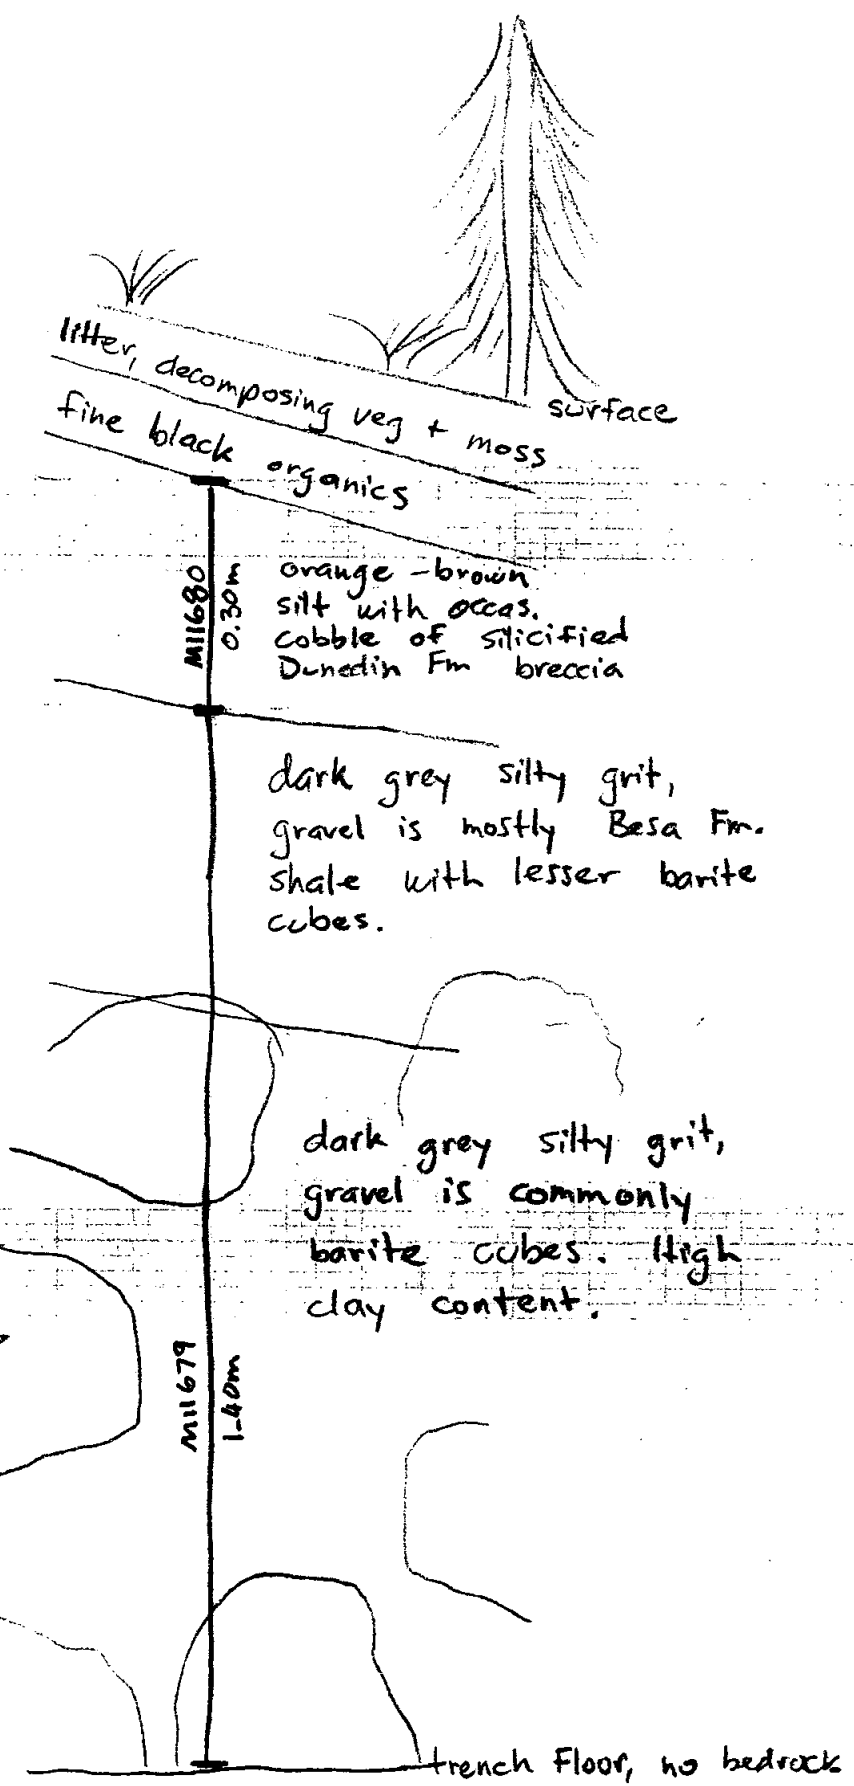 surface
litter, decomposing veg + moss
fine black organics
M11680
0.30m
orange-brown
silt with occas.
cobble of silicified
Dunedin Fm breccia
dark grey silty grit,
gravel is mostly Besa Fm.
shale with lesser barite
cubes.
dark grey silty grit,
gravel is commonly
barite cubes. High
clay content.
M11679
1.40m
trench Floor, no bedrock